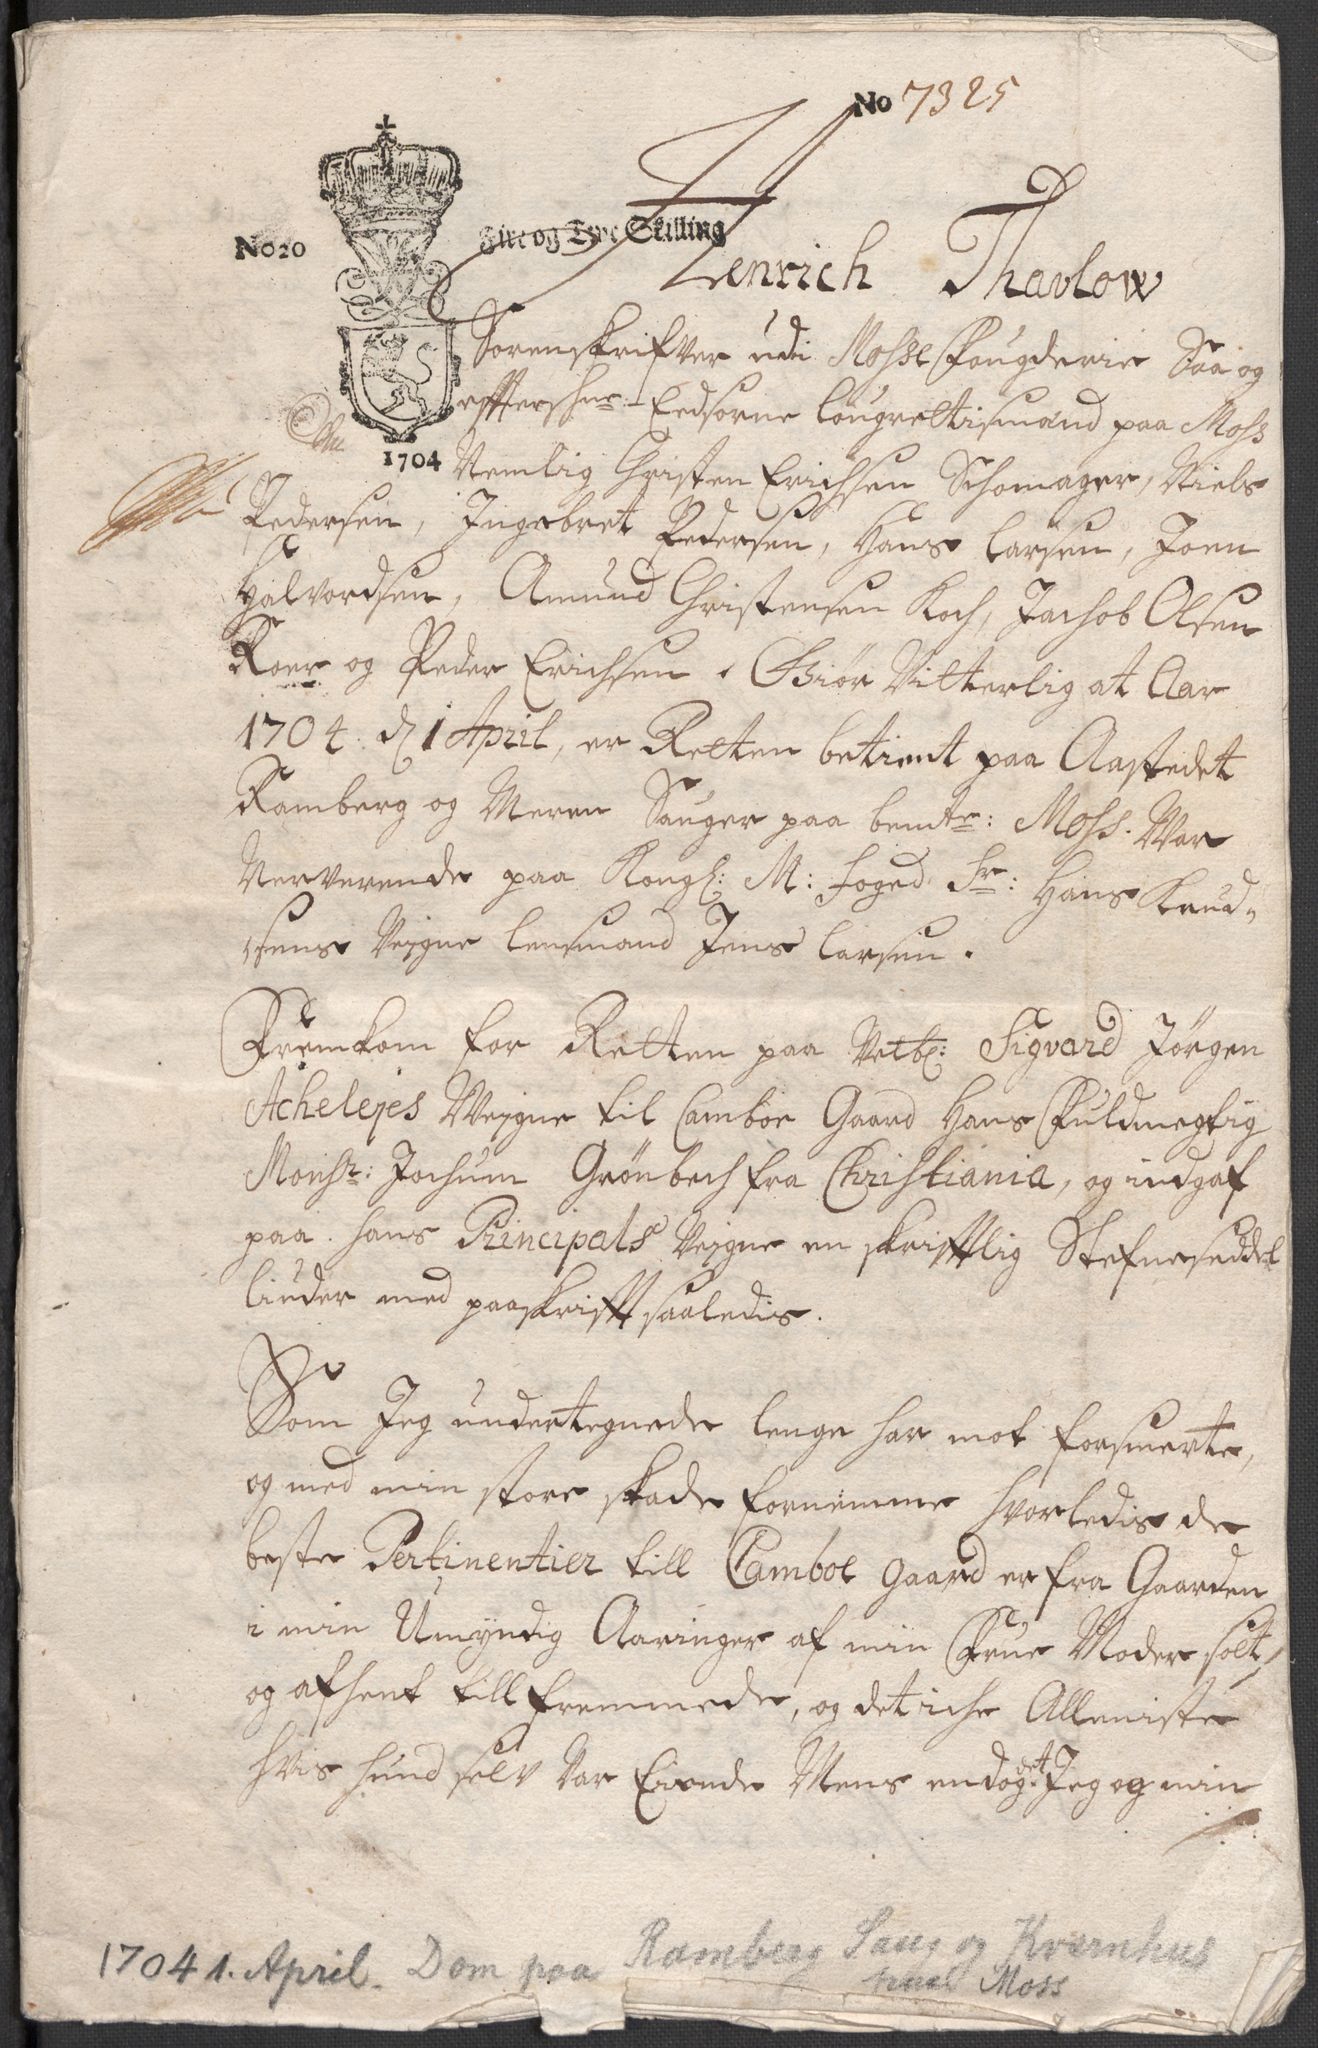 No 7325
No 20
Fire og Tyve Skilling
1704
Henrich Thavlow
Sorenskrifver udi Mosse Fougderie Saa og
effterschne Eedsorne lougrettismænd paa Moss
Nemlig Christen Erichsen Schomager, Niels
Pedersen, Ingebret Pedersen, Hans Larsen, Joen
Halvordsen, Amund Christensen Koch, Jachob Olsen
Roer og Peder Erichsen. Giør Vitterlig at Aar
1704 d 1 April, er Retten betient paa Aastedet
Ramberg og Meren Sauger paa bemte: Moss. War
Nerverende paa Kongl: M: foged Sr: Hans Knud-
sens Veigne lensmand Jens Larsen.
Fremkom for Retten paa Velb: Sigvard Jørgen
Acheleyes Weigne til Camboe Gaard Hans Fuldmegtig
Monsr: Jochum Grønbech fra Christiania, og indgaf
paa hans Principals Veigne en skrifftlig Stefneseddel
liuder med paaskrifft saaledis.
Som Jeg undertegnede lenge har mot forsmerte,
og med min store skade fornemme hvorledis de
beste Pertinentier till Camboe gaard er fra Gaarden
i min Umyndig Aaringer af min Frue Moder solt,
og afhent till fremmede, og det iche Alleniste
hvis hund selv var Eiende Mens endog det Jeg og min
1704 1. April. Dom paa Ramberg Saug og Kvernhus
paa Moss